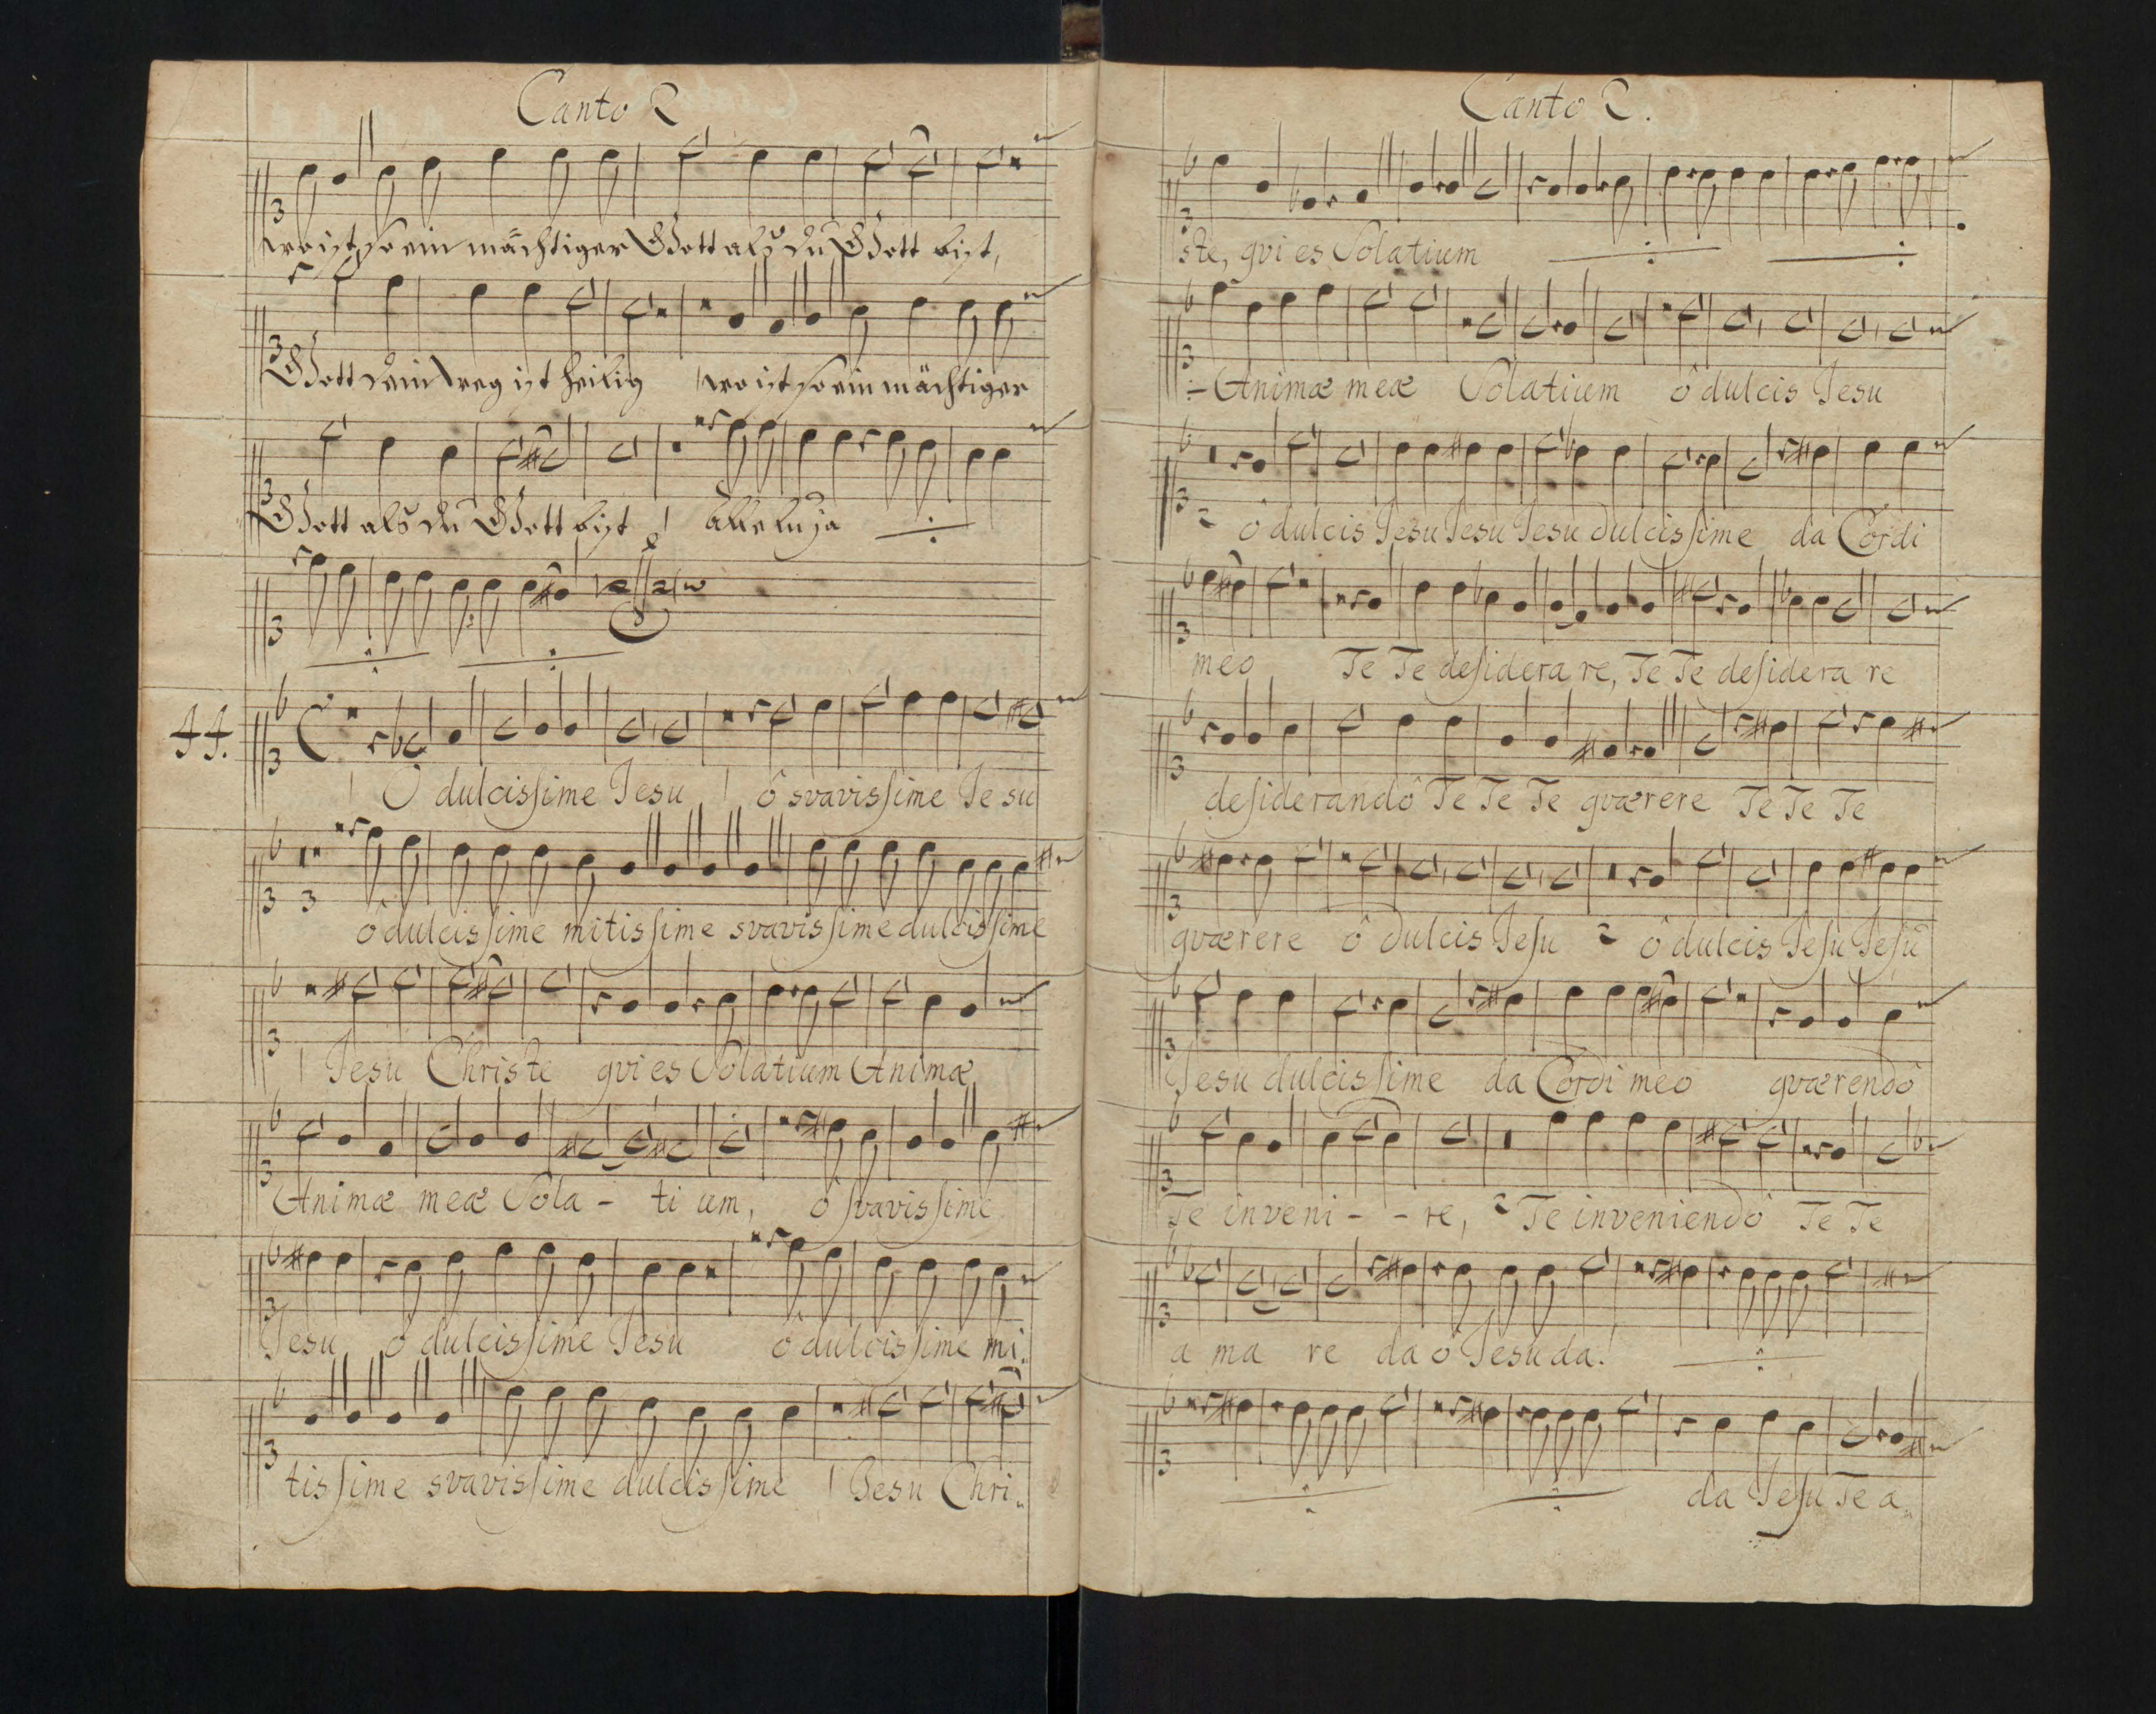 Canto 2
wo ist so ein mächtiger Gott als du Gott bist,
Gott dein weg ist heilig wo ist so ein mächtiger
Gott als du Gott bist alleluja
44.
O dulcissime Jesu ô svavissime Jesu
ô dulcissime mitissime svavissime dulcissime
Jesu Christe qvi es Solatium Animæ
Animæ meæ Sola - ti um, ô svavissime
Jesu ô dulcissime Jesu ô dulcissime mi..
tissime svavissime dulcissime Jesu Chri..
Canto 2.
ste, qvi es Solatium
Animæ meæ Solatium ô dulcis Jesu
2 ô dulcis Jesu Jesu Jesu dulcissime da Cordi
meo Te Te desiderare, Te Te desiderare
desiderandô Te Te Te qværere Te Te Te
qværere ô dulcis Jesu 2 ô dulcis Jesu Jesu
Jesu dulcissime da Cordi meo qværendô
Te inveni - - re, 2 Te inveniendô Te Te
a ma re da ô Jesu da!
da Jesu Te a..